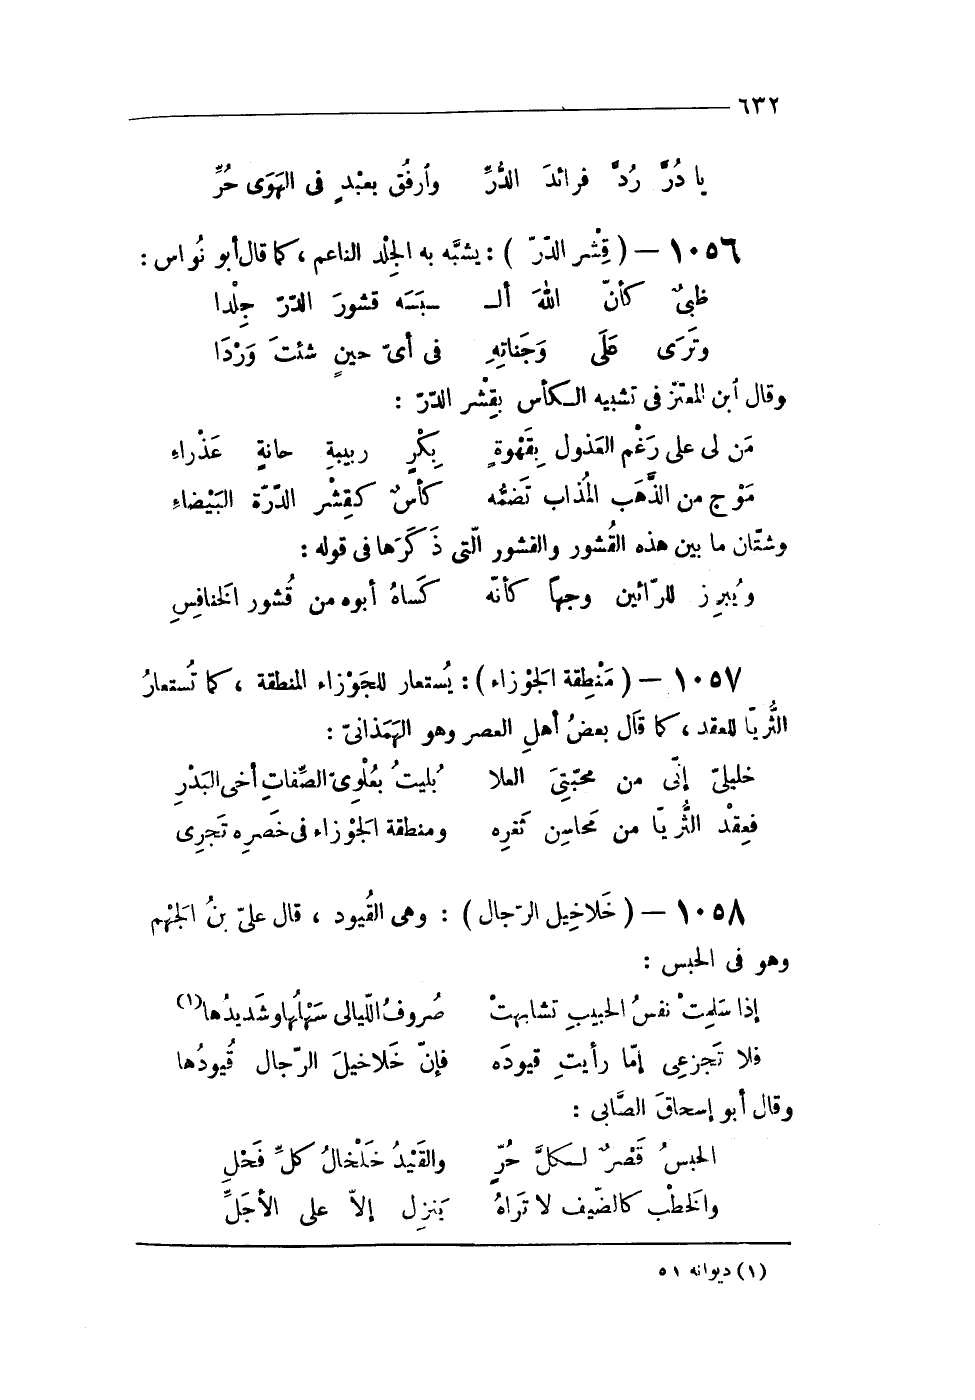 ٦٣٢
يا دُرَّ رُدَّ فرائدَ الدُّرِّ وٱرفُق بعبْدٍ فى الهَوَى حُرِّ
١٠٥٦ — ( قِشْر الدّرّ ) : يشبَّه به الجِلْد الناعم ، كما قال أبو نُواس :
ظبىٌ كأنّ اللهَ ألـ ـبَسَه قشورَ الدّرّ جِلْدا
وترَى عَلَى وَجَناتِهِ فى أىّ حينٍ شئتَ وَرْدَا
وقال ٱبن المعتزّ فى تشبيه الـكأس بقِشْر الدّرّ :
مَن لى على رَغْم العَذول بِقَهْوةٍ بِكْرٍ ربيبةِ حانةٍ عَذْراء
مَوْج من الذَّهَب المُذاب تَضمُّه كأسٌ كقِشْر الدّرّة البَيْضاءِ
وشتّان ما بين هذه القُشور والقشور الّتى ذَكَرَها فى قوله :
ويُبرِز للرّائين وجهاً كأنّه كَساهُ أبوه من قُشور الخنافِسِ
١٠٥٧ — ( مَنْطِقة الجَوْزاء ) : يُستعار للجَوْزاء المنطقة ، كما تُستعارُ
الثُّريّا للعقد ، كما قَال بعضُ أهلِ العصر وهو الهَمَذانىّ :
خليلىّ إنّى من محبّتِىَ العلا بُليتُ بعُلْوِىّ الصِّفاتِ أخى البَدْرِ
فعِقْد الثُّريّا من مَحاسِن ثَغرِه ومنطقة الجَوْزاء فى خَصرِه تَجرِى
١٠٥٨ — ( خَلاخِيل الرّجال ) : وهى القُيود ، قال علىّ بنُ الجَهْم
وهو فى الحبس :
إذا سَلِمتْ نفسُ الحبيبِ تشابهتْ صُروفُ اللّيالى سَهْلُها وشَديدُها(١)
فلا تَجزعِى إمّا رأيتِ قيودَه فإنّ خَلاخيلَ الرّجال قُيودُها
وقال أبو إسحاقَ الصَّابى :
الحبسُ قَصْرٌ لـكلَّ حُرٍّ والقَيْدُ خَلْخالُ كلِّ فَحْلِ
والخَطْب كالضّيف لا تَراهُ يَنزِل إلاّ على الأجَلِّ
(١) ديوانه ٥١